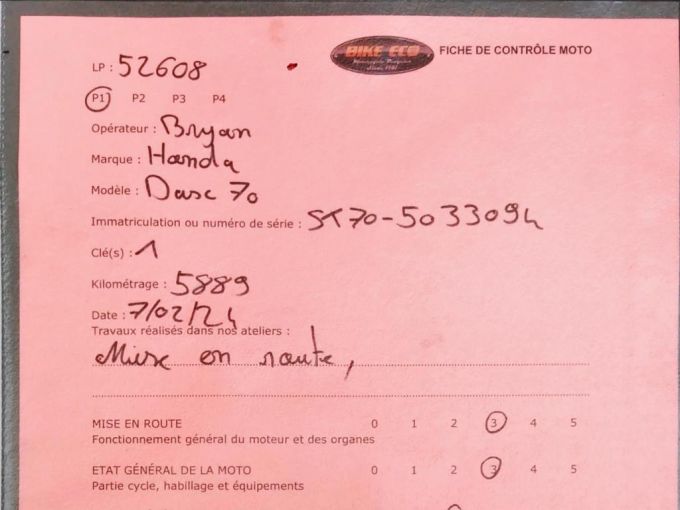 BIKE ECO
FICHE DE CONTRÔLE MOTO
LP : 52608
P1 P2 P3 P4
Opérateur : Bryan
Marque : Honda
Modèle : Dax 70
Immatriculation ou numéro de série : ST70-5033094
Clé(s) : 1
Kilométrage : 5889
Date : 7/02/24
Travaux réalisés dans nos ateliers :
Mise en route,
MISE EN ROUTE 0 1 2 3 4 5
Fonctionnement général du moteur et des organes
ETAT GÉNÉRAL DE LA MOTO 0 1 2 3 4 5
Partie cycle, habillage et équipements